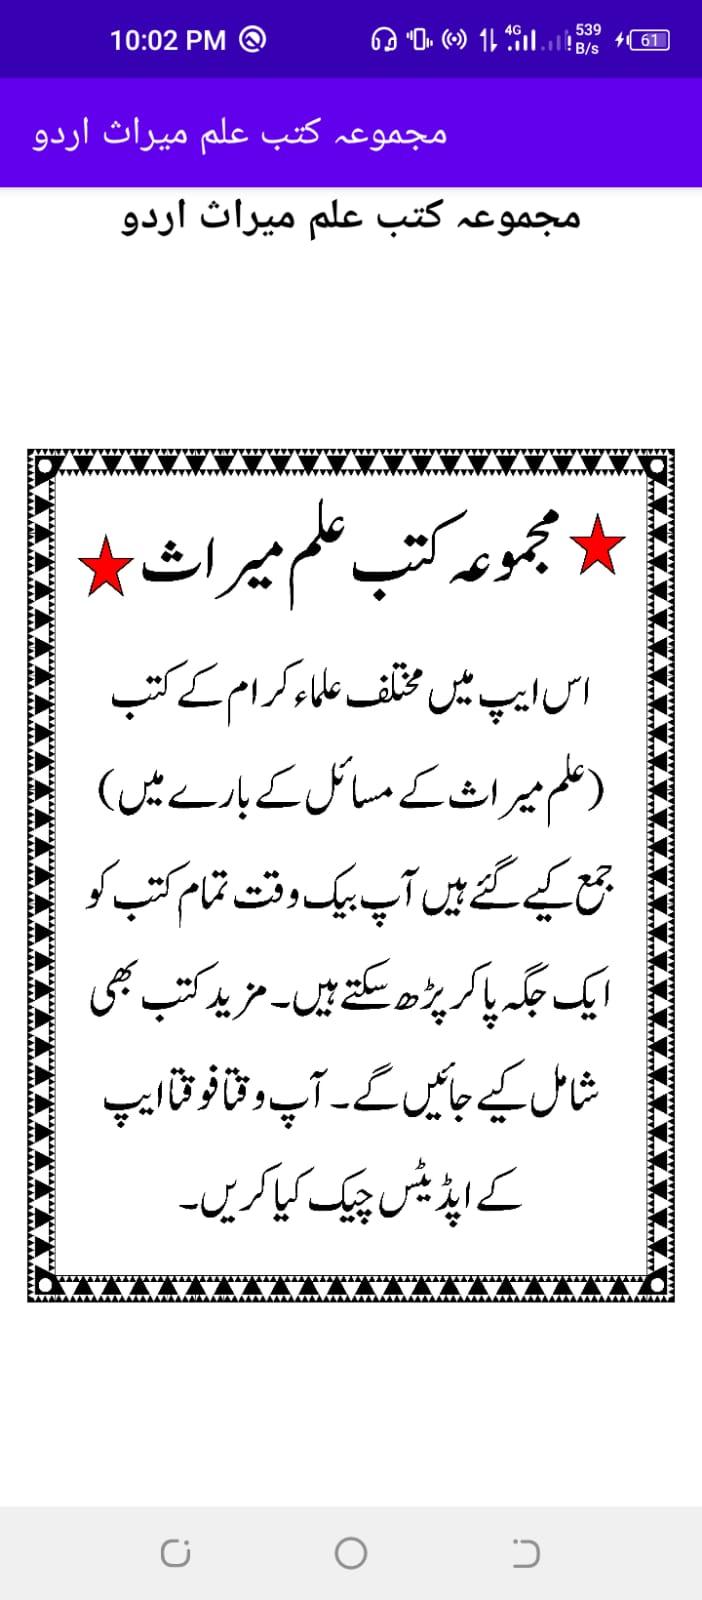 10:02 PM 4G 539 B/s 61
مجموعہ کتب علم میراث اردو
مجموعہ کتب علم میراث اردو
مجموعہ کتب علم میراث
اس ایپ میں مختلف علماء کرام کے کتب
(علم میراث کے مسائل کے بارے میں)
جمع کیے گئے ہیں آپ بیک وقت تمام کتب کو
ایک جگہ پا کر پڑھ سکتے ہیں۔ مزید کتب بھی
شامل کیے جائیں گے۔ آپ وقتا فوقتا ایپ
کے اپڈیٹس چیک کیا کریں۔